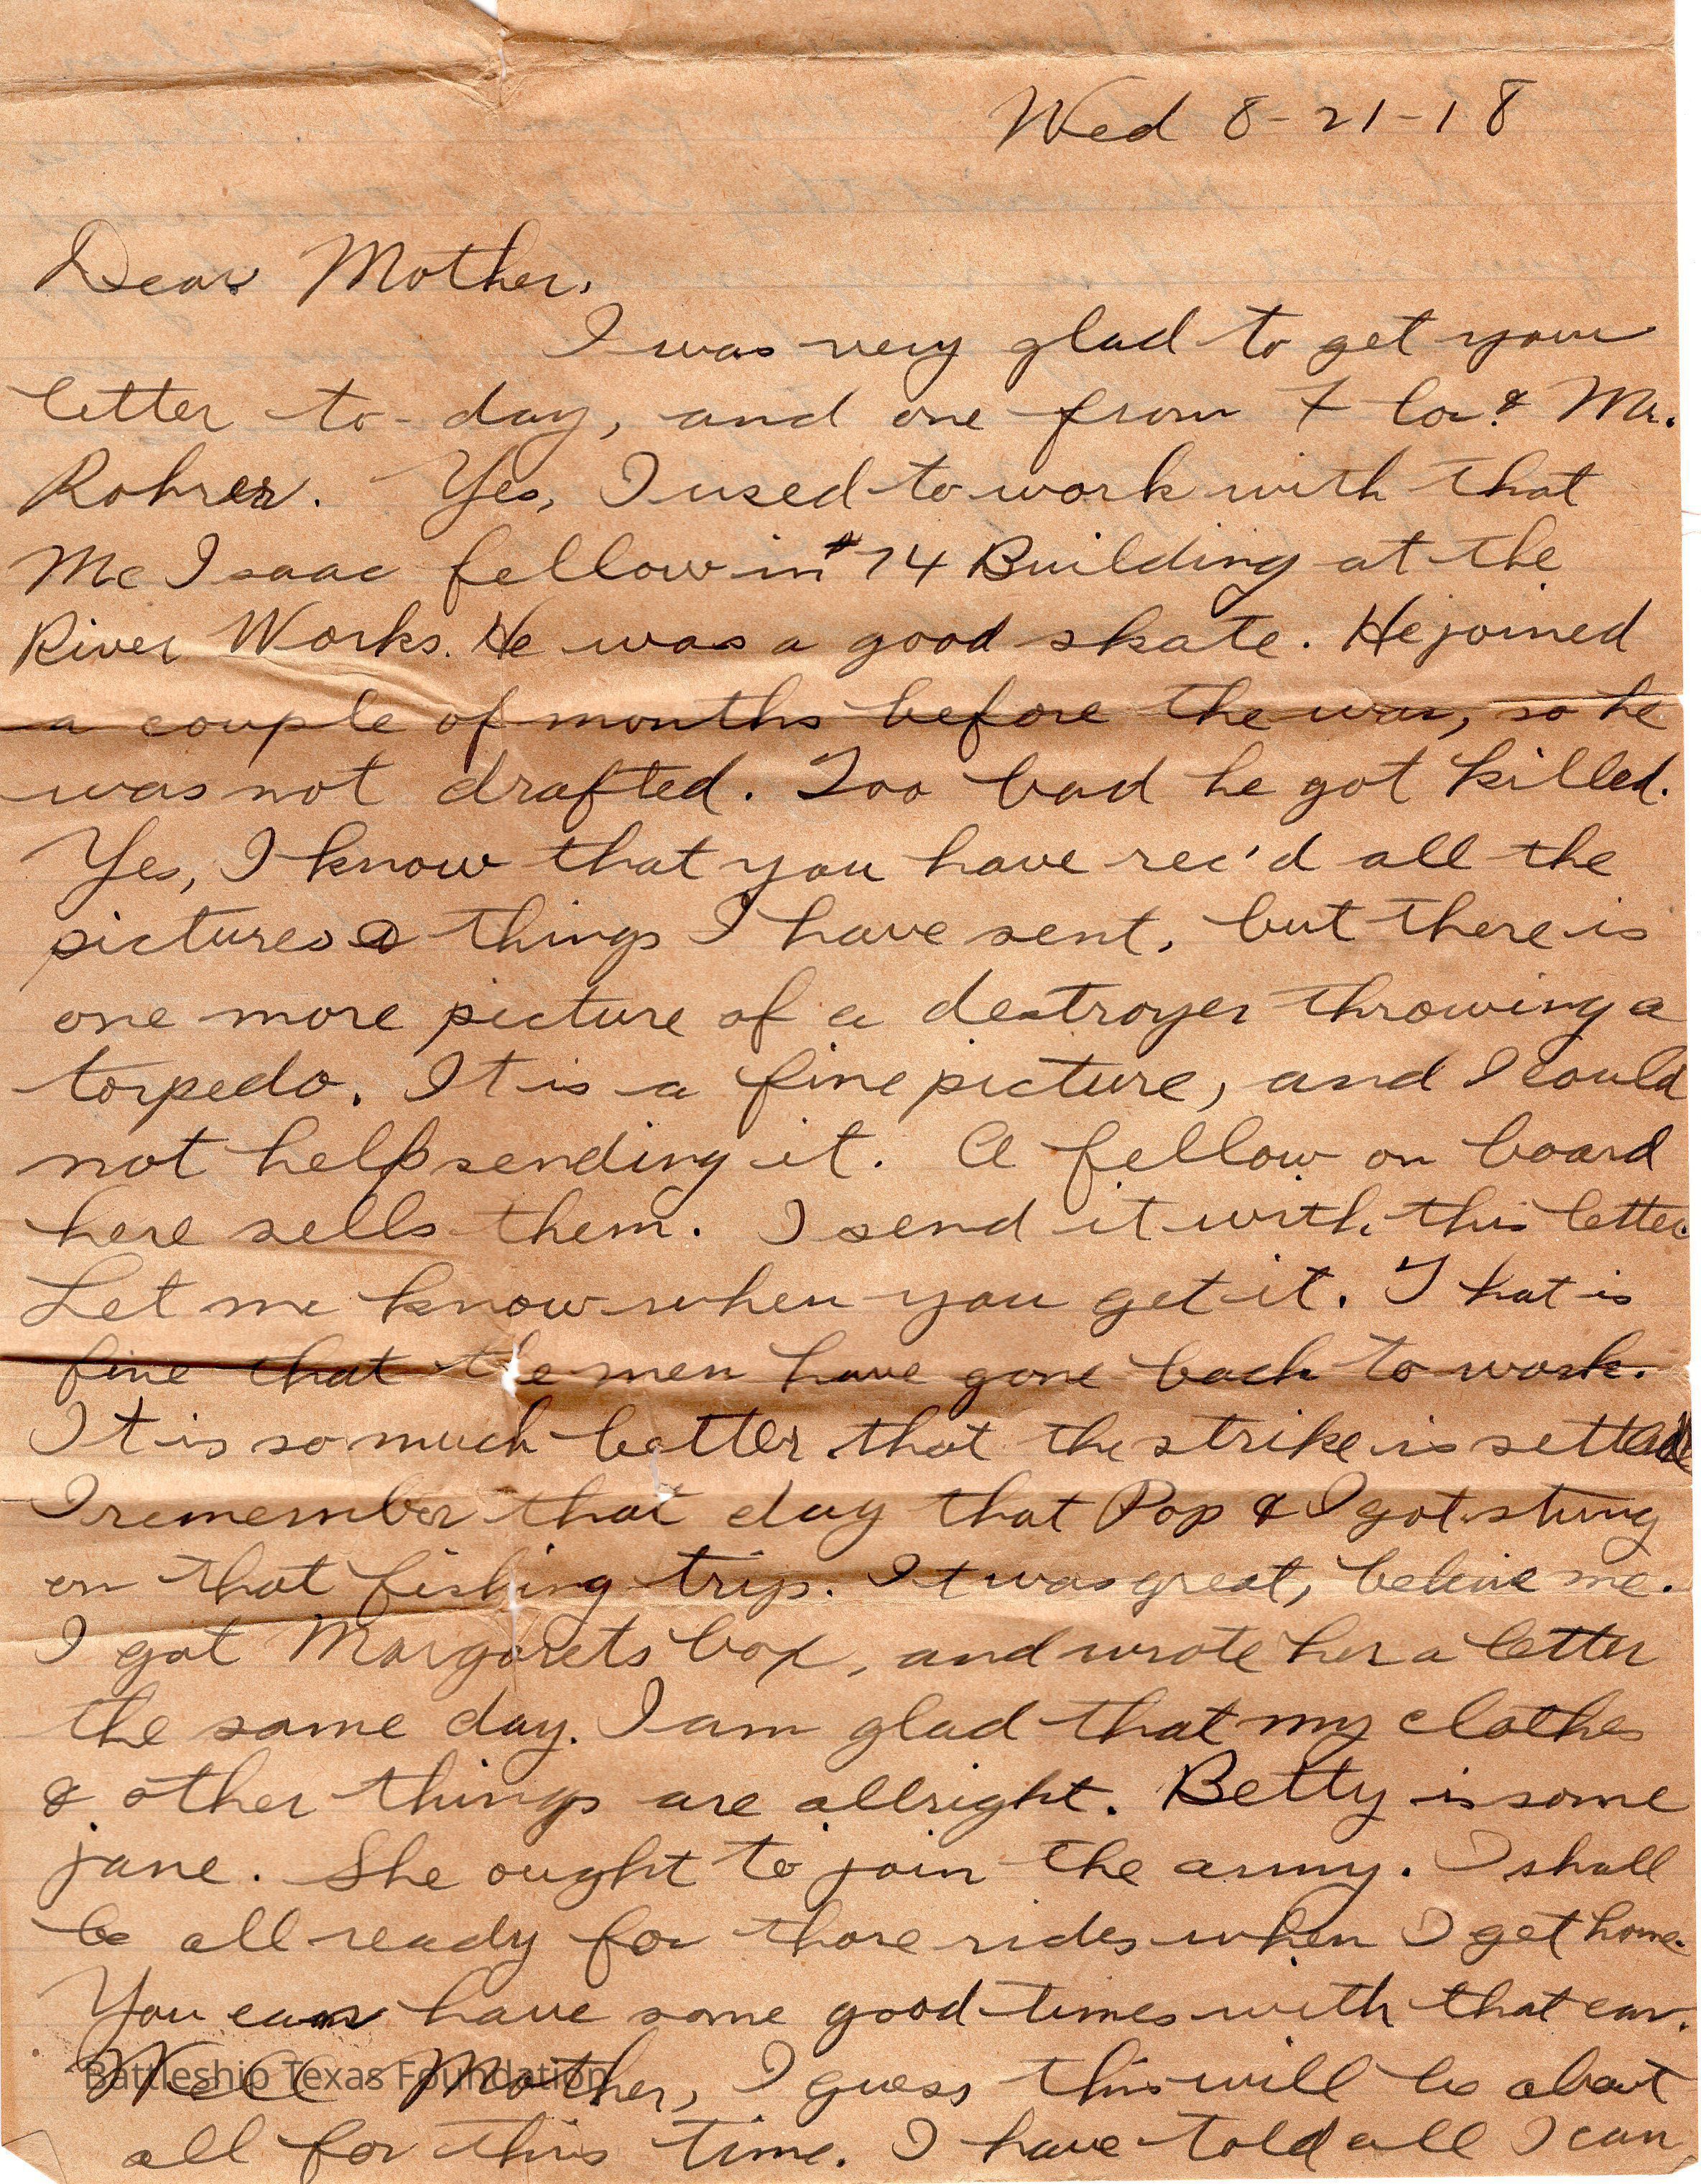 Wed 8-21-18
Dear Mother,
I was very glad to get your
letter to-day, and one from Flo. & Mr.
Rohrer. Yes, I used to work with that
McIsaac fellow in #74 Building at the
River Works. He was a good skate. He joined
a couple of months before the war, so he
was not drafted. Too bad he got killed.
Yes, I know that you have rec'd all the
pictures & things I have sent, but there is
one more picture of a destroyer throwing a
torpedo. It is a fine picture, and I could
not help sending it. A fellow on board
here sells them. I send it with this letter.
Let me know when you get it. That is
fine that the men have gone back to work.
It is so much better that the strike is settled
I remember that day that Pop & I got stung
on that fishing trip. It was great, believe me.
I got Margarets box, and wrote her a letter
the same day. I am glad that my clothes
& other things are allright. Betty is some
jane. She ought to join the army. I shall
be all ready for those rides when I get home.
You can have some good times with that car.
Well Mother, I guess this will be about
Battleship Texas Foundation
all for this time. I have told all I can,